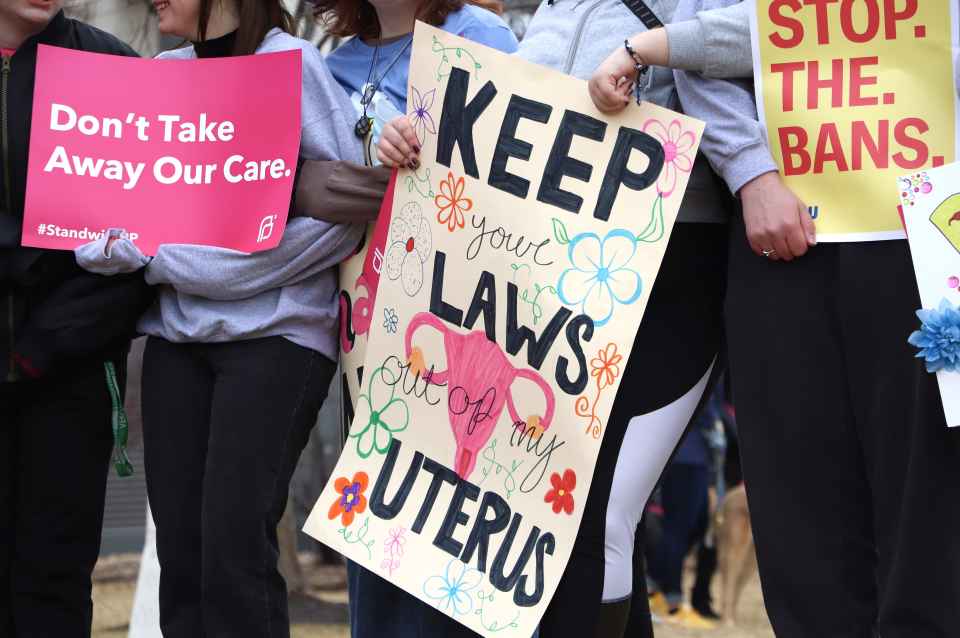 Don't Take
Away Our Care.
#Standwi PP
KEEP
your
LAWS
out of my
UTERUS
STOP.
THE.
BANS.